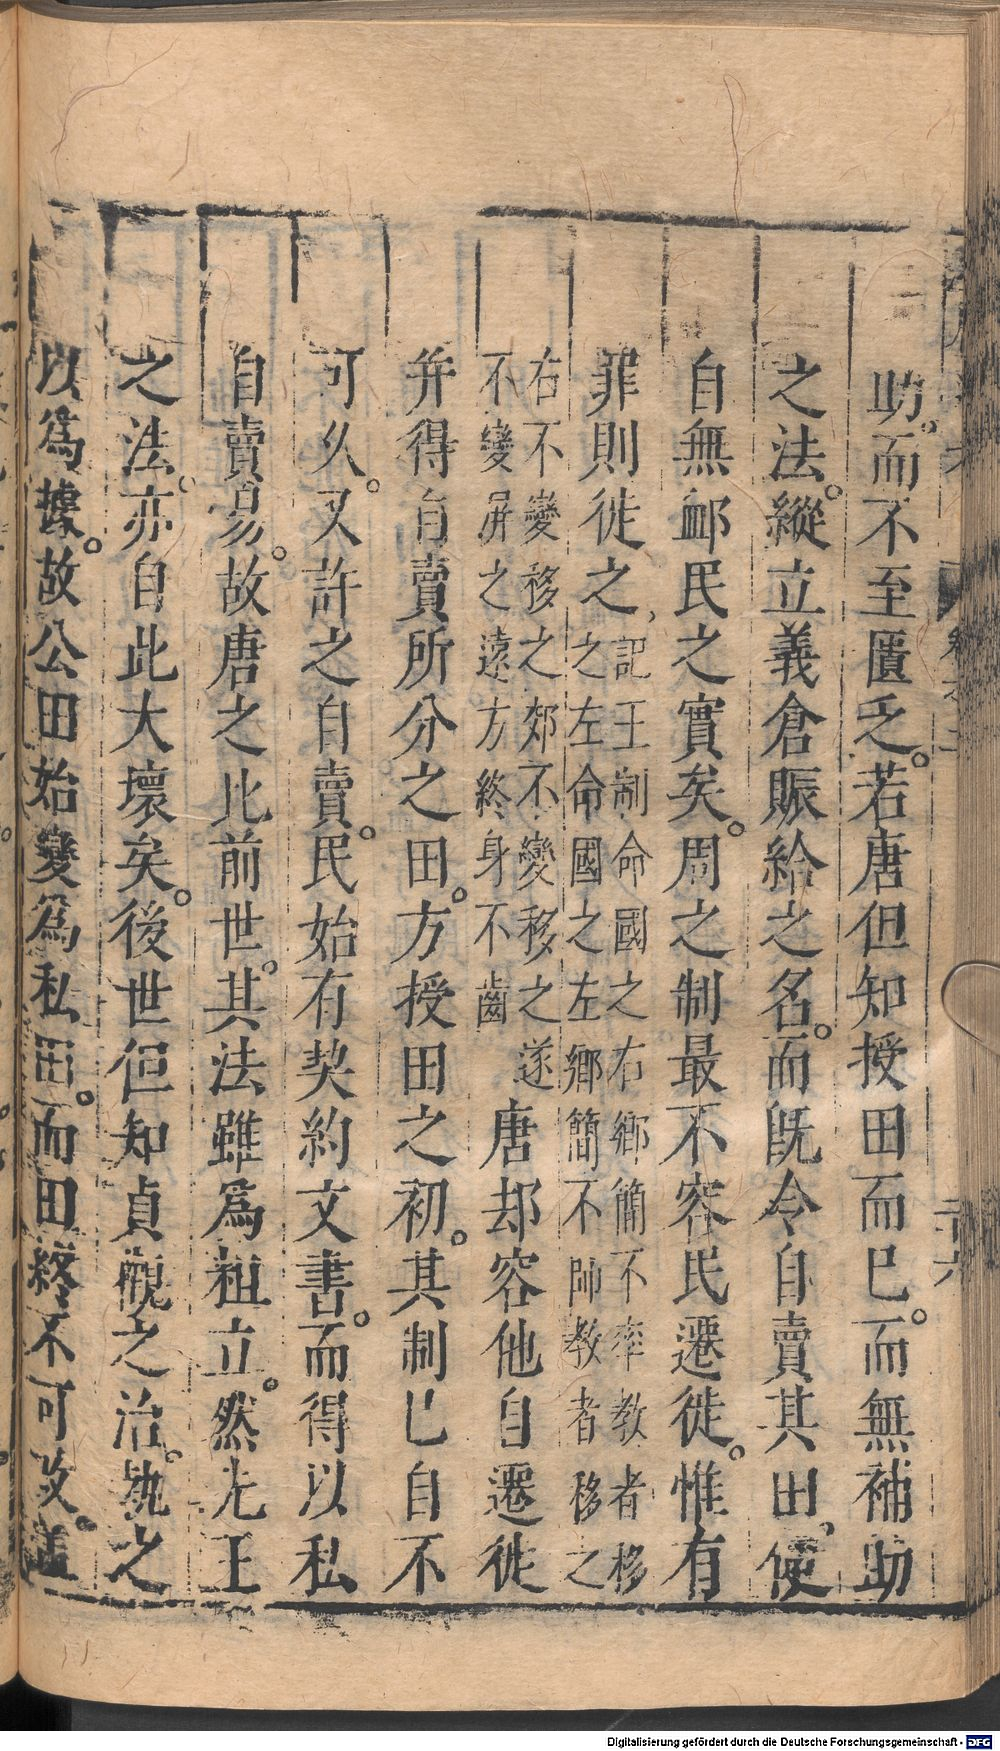 助而不至匱乏。若唐但知授田而已。而無補助
之法。縱立義倉賑給之名。而旣令自賣其田。便
自無䘏民之實矣。周之制最不容民遷徙。惟有
罪則徙之、記王制命國之右鄉簡不率教者移
之左命國之左鄉簡不帥教者移之
右不變移之郊不變移之遂
不變屏之遠方終身不齒
唐却容他自遷徙
并得自賣所分之田。方授田之初。其制已自不
可久。又許之自賣。民始有契約文書。而得以私
自賣易。故唐之比前世。其法雖爲粗立。然先王
之法。亦自此大壞矣。後世但知貞觀之治。執之
以爲據。故公田始變爲私田。而田終不可改。蓋
二十六
Digitalisierung gefördert durch die Deutsche Forschungsgemeinschaft - DFG